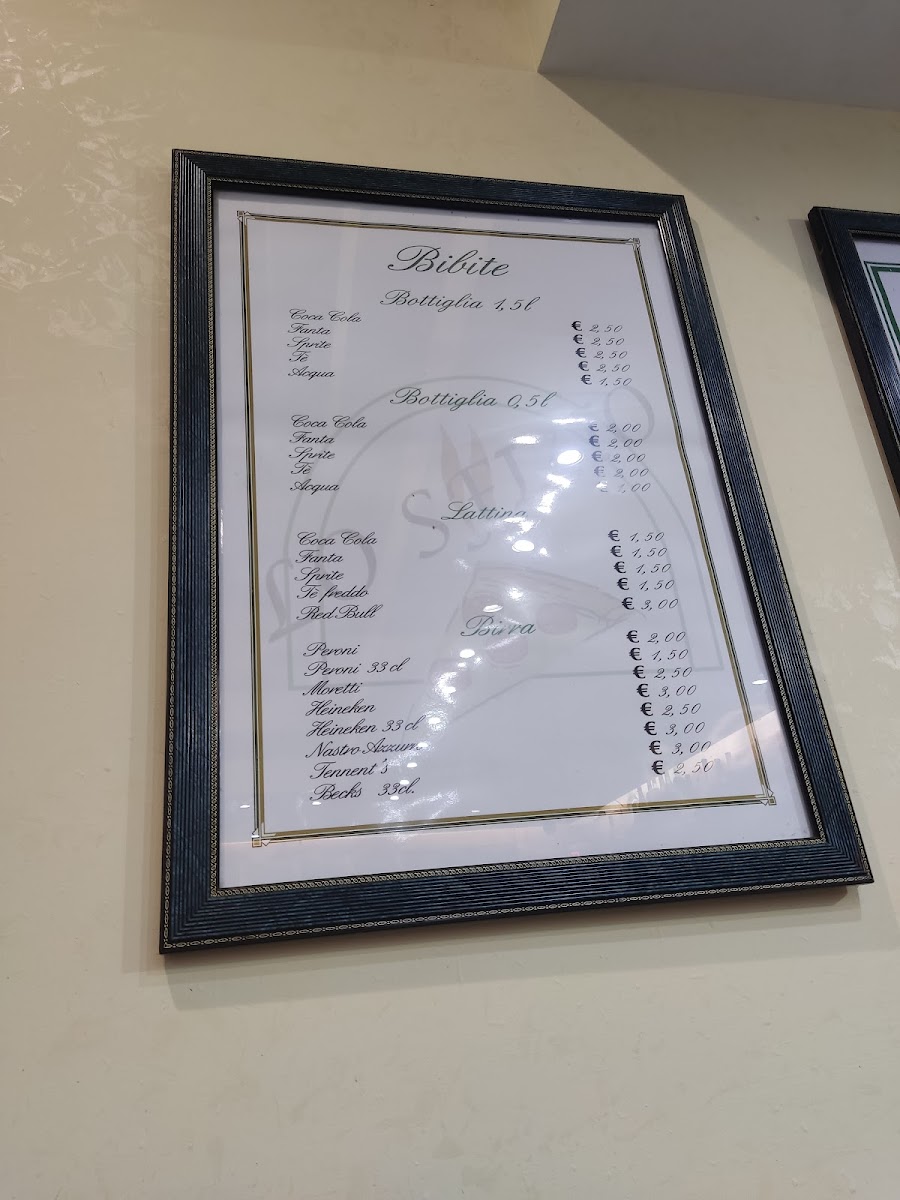 Bibite
Bottiglia 1,5l
Coca Cola € 2,50
Fanta € 2,50
Sprite € 2,50
Tè € 2,50
Acqua € 1,50
Bottiglia 0,5l
Coca Cola € 2,00
Fanta € 2,00
Sprite € 2,00
Tè € 2,00
Acqua € 1,00
Lattina
Coca Cola € 1,50
Fanta € 1,50
Sprite € 1,50
Tè freddo € 1,50
Red Bull € 3,00
Birra
Peroni € 2,00
Peroni 33 cl € 1,50
Moretti € 2,50
Heineken € 3,00
Heineken 33 cl € 2,50
Nastro Azzurro € 3,00
Tennent's € 3,00
Becks 33cl. € 2,50